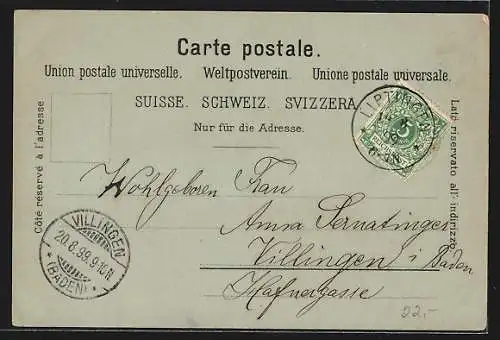 Carte postale.
Union postale universelle. Weltpostverein. Unione postale universale.
SUISSE. SCHWEIZ. SVIZZERA.
Nur für die Adresse.
Côté réservé à l'adresse
Lato riservato all' indirizzo
LIPTINGEN
5
Wohlgeboren Frau
Anna
Villingen i/Baden
Hafnergasse
VILLINGEN
20.6.99.9-10N
(BADEN)
22.-